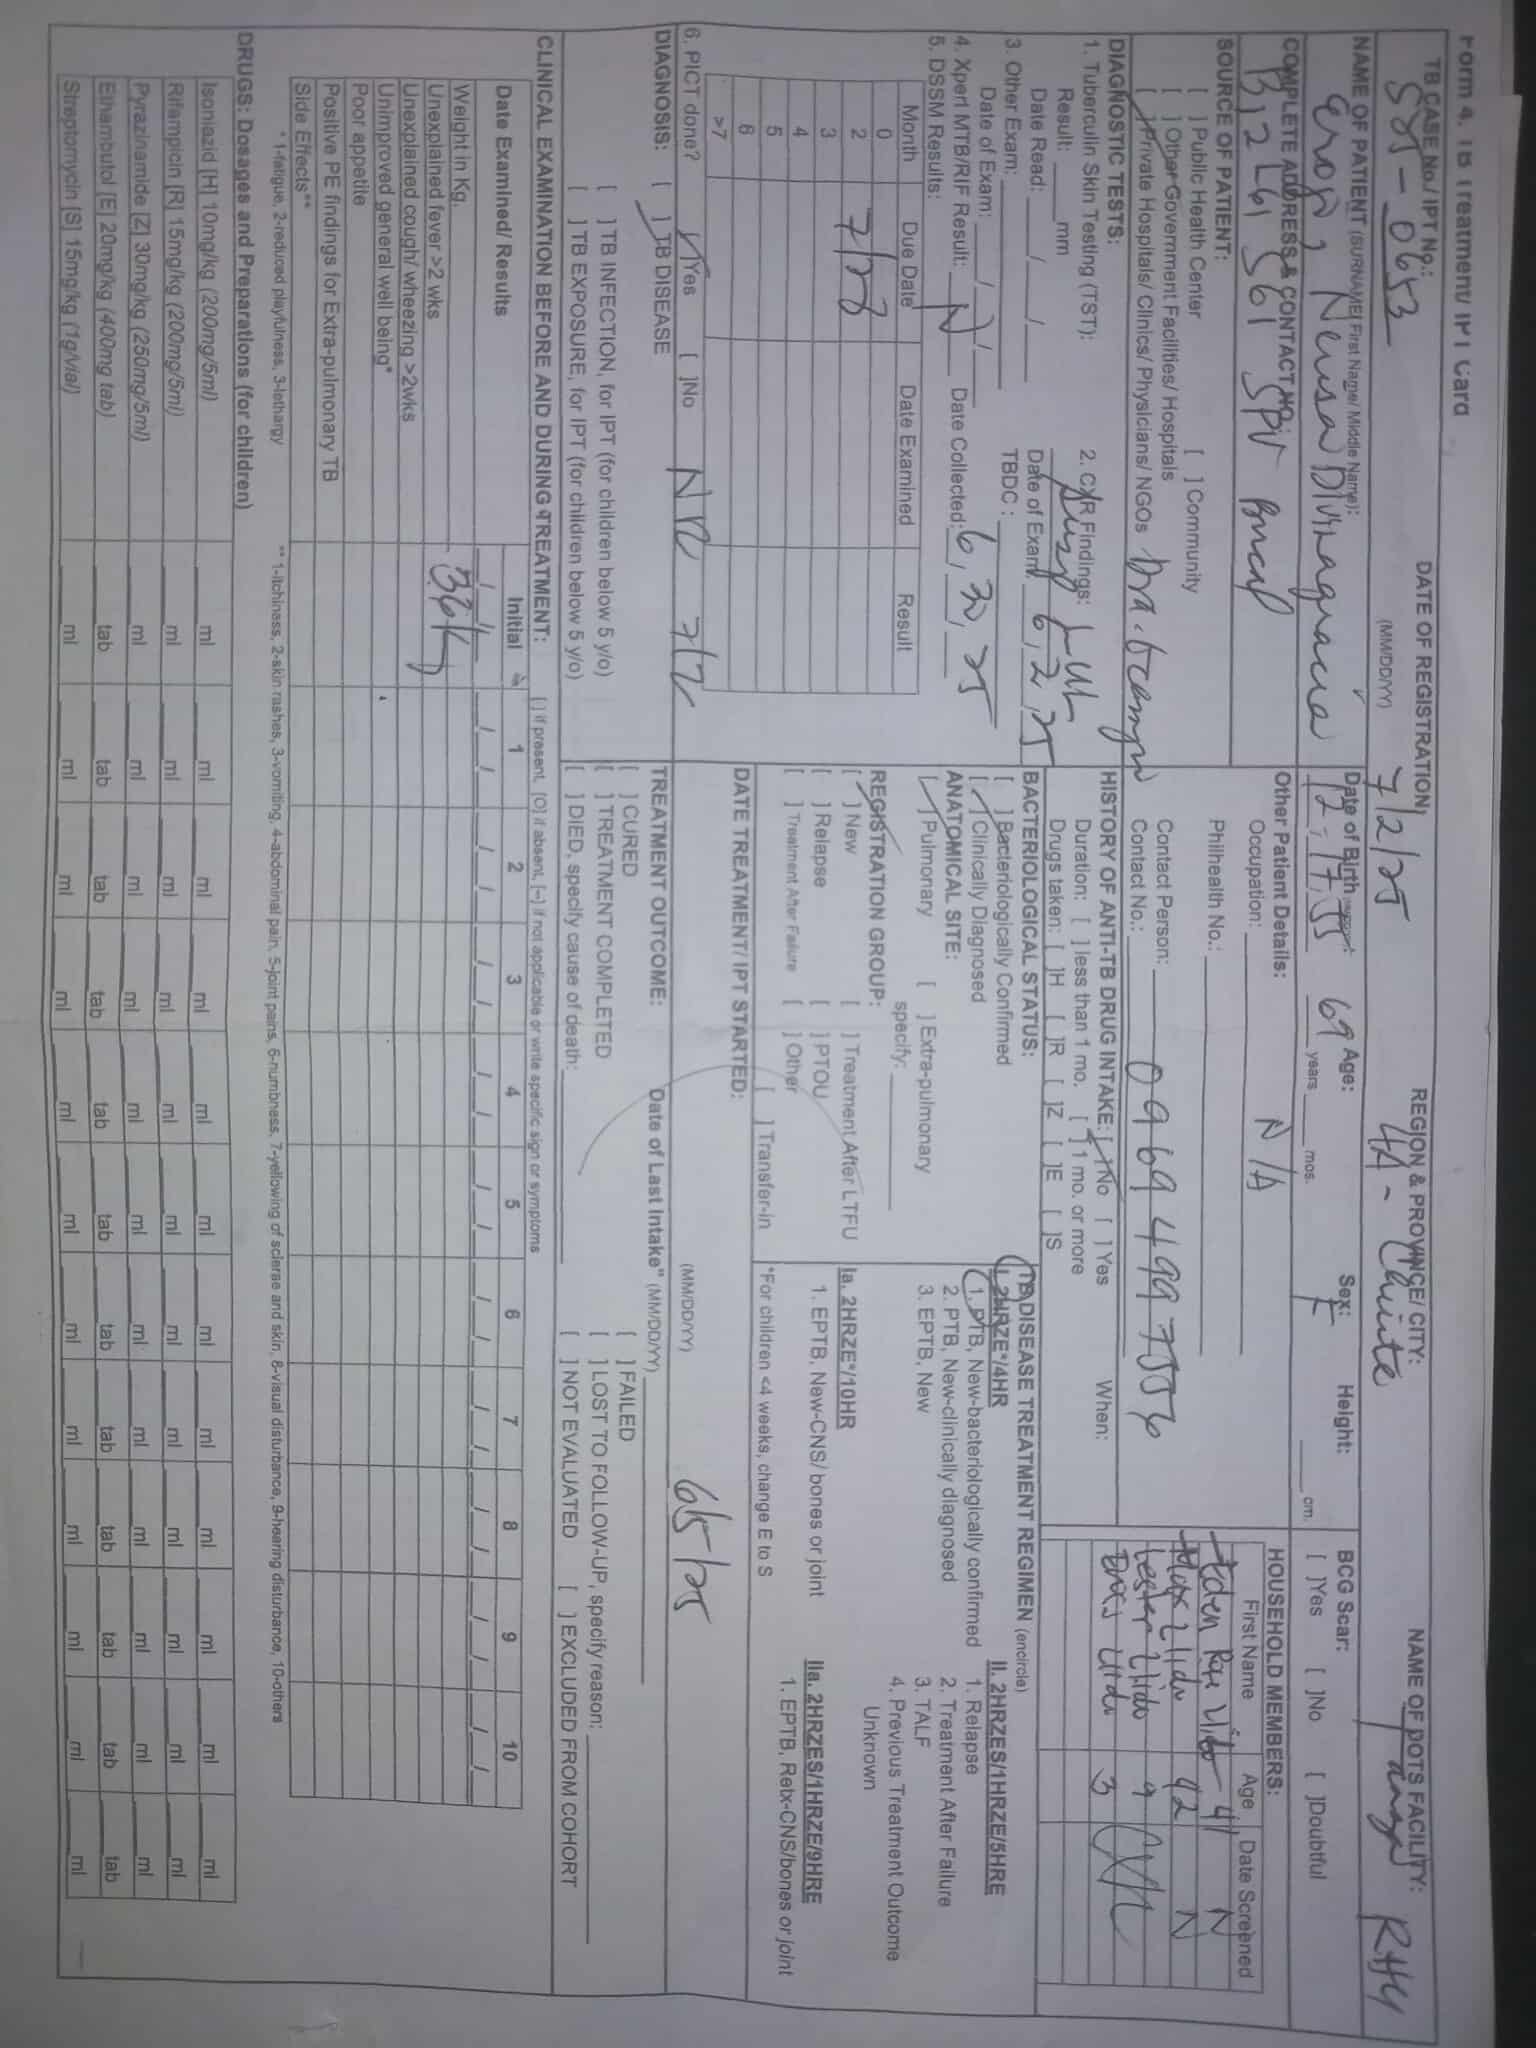 Form 4. TB Treatment/ IPT Card
TB CASE No./ IPT No.:
DATE OF REGISTRATION
7/2/25
(MM/DD/YY)
REGION & PROVINCE/ CITY:
4A - Cavite
NAME OF DOTS FACILITY:
Tanza RHU
NAME OF PATIENT (SURNAME/ First Name/ Middle Name):
Date of Birth
12-17-55
69 Age:
years
mos.
Sex:
F
Height:
cm.
BCG Scar:
[ ]Yes [ ]No [ ]Doubtful
COMPLETE ADDRESS & CONTACT NO.:
B12 L61
Other Patient Details:
Occupation: N/A
Philhealth No.:
Contact Person:
Contact No.: 0969 499 7556
HOUSEHOLD MEMBERS:
First Name Age Date Screened
41 N
42 N
9
3
SOURCE OF PATIENT:
[ ] Public Health Center [ ] Community
[ ] Other Government Facilities/ Hospitals
[ ] Private Hospitals/ Clinics/ Physicians/ NGOs
DIAGNOSTIC TESTS:
1. Tuberculin Skin Testing (TST):
Result: mm
Date Read: / /
2. CXR Findings:
Date of Exam: 6, 2, 25
TBDC:
3. Other Exam:
Date of Exam: / /
4. Xpert MTB/RIF Result: N Date Collected: 6, 30, 25
5. DSSM Results:
Month Due Date Date Examined Result
0
2 7/28
3
4
5
6
>7
6. PICT done? Yes [ ]No NR 7/2
HISTORY OF ANTI-TB DRUG INTAKE: [ ]No [ ] Yes When:
Duration: [ ] less than 1 mo. [ ] 1 mo. or more
Drugs taken: [ ]H [ ]R [ ]Z [ ]E [ ]S
BACTERIOLOGICAL STATUS:
[ ] Bacteriologically Confirmed
[ ] Clinically Diagnosed
ANATOMICAL SITE:
[ ] Pulmonary [ ] Extra-pulmonary
specify:
REGISTRATION GROUP:
[ ] New [ ] Treatment After LTFU
[ ] Relapse [ ] PTOU
[ ] Treatment After Failure [ ] Other
[ ] Transfer-in
TB DISEASE TREATMENT REGIMEN (encircle)
I. 2HRZE*/4HR
1. PTB, New-bacteriologically confirmed
2. PTB, New-clinically diagnosed
3. EPTB, New
Ia. 2HRZE*/10HR
1. EPTB, New-CNS/ bones or joint
*For children <4 weeks, change E to S
II. 2HRZES/1HRZE/5HRE
1. Relapse
2. Treatment After Failure
3. TALF
4. Previous Treatment Outcome Unknown
IIa. 2HRZES/1HRZE/9HRE
1. EPTB, Retx-CNS/bones or joint
DATE TREATMENT/ IPT STARTED:
(MM/DD/YY)
DIAGNOSIS: [ ] TB DISEASE
[ ] TB INFECTION, for IPT (for children below 5 y/o)
[ ] TB EXPOSURE, for IPT (for children below 5 y/o)
TREATMENT OUTCOME: Date of Last Intake" (MM/DD/YY)
[ ] CURED [ ] FAILED
[ ] TREATMENT COMPLETED [ ] LOST TO FOLLOW-UP, specify reason:
[ ] DIED, specify cause of death: [ ] NOT EVALUATED [ ] EXCLUDED FROM COHORT
CLINICAL EXAMINATION BEFORE AND DURING TREATMENT: [ ] if present, [O] if absent, [–] if not applicable or write specific sign or symptoms
Date Examined/ Results Initial 1 2 3 4 5 6 7 8 9 10
Weight in Kg.
Unexplained fever >2 wks
Unexplained cough/ wheezing >2wks
Unimproved general well being*
Poor appetite
Positive PE findings for Extra-pulmonary TB
Side Effects**
*1-fatigue, 2-reduced playfulness, 3-lethargy ** 1-itchiness, 2-skin rashes, 3-vomiting, 4-abdominal pain, 5-joint pains, 6-numbness, 7-yellowing of sclerae and skin, 8-visual disturbance, 9-hearing disturbance, 10-others
DRUGS: Dosages and Preparations (for children)
Isoniazid [H] 10mg/kg (200mg/5ml) ml ml ml ml ml ml ml ml ml ml ml
Rifampicin [R] 15mg/kg (200mg/5ml) ml ml ml ml ml ml ml ml ml ml ml
Pyrazinamide [Z] 30mg/kg (250mg/5ml) ml ml ml ml ml ml ml ml ml ml ml
Ethambutol [E] 20mg/kg (400mg tab) tab tab tab tab tab tab tab tab tab tab tab
Streptomycin [S] 15mg/kg (1g/vial) ml ml ml ml ml ml ml ml ml ml ml